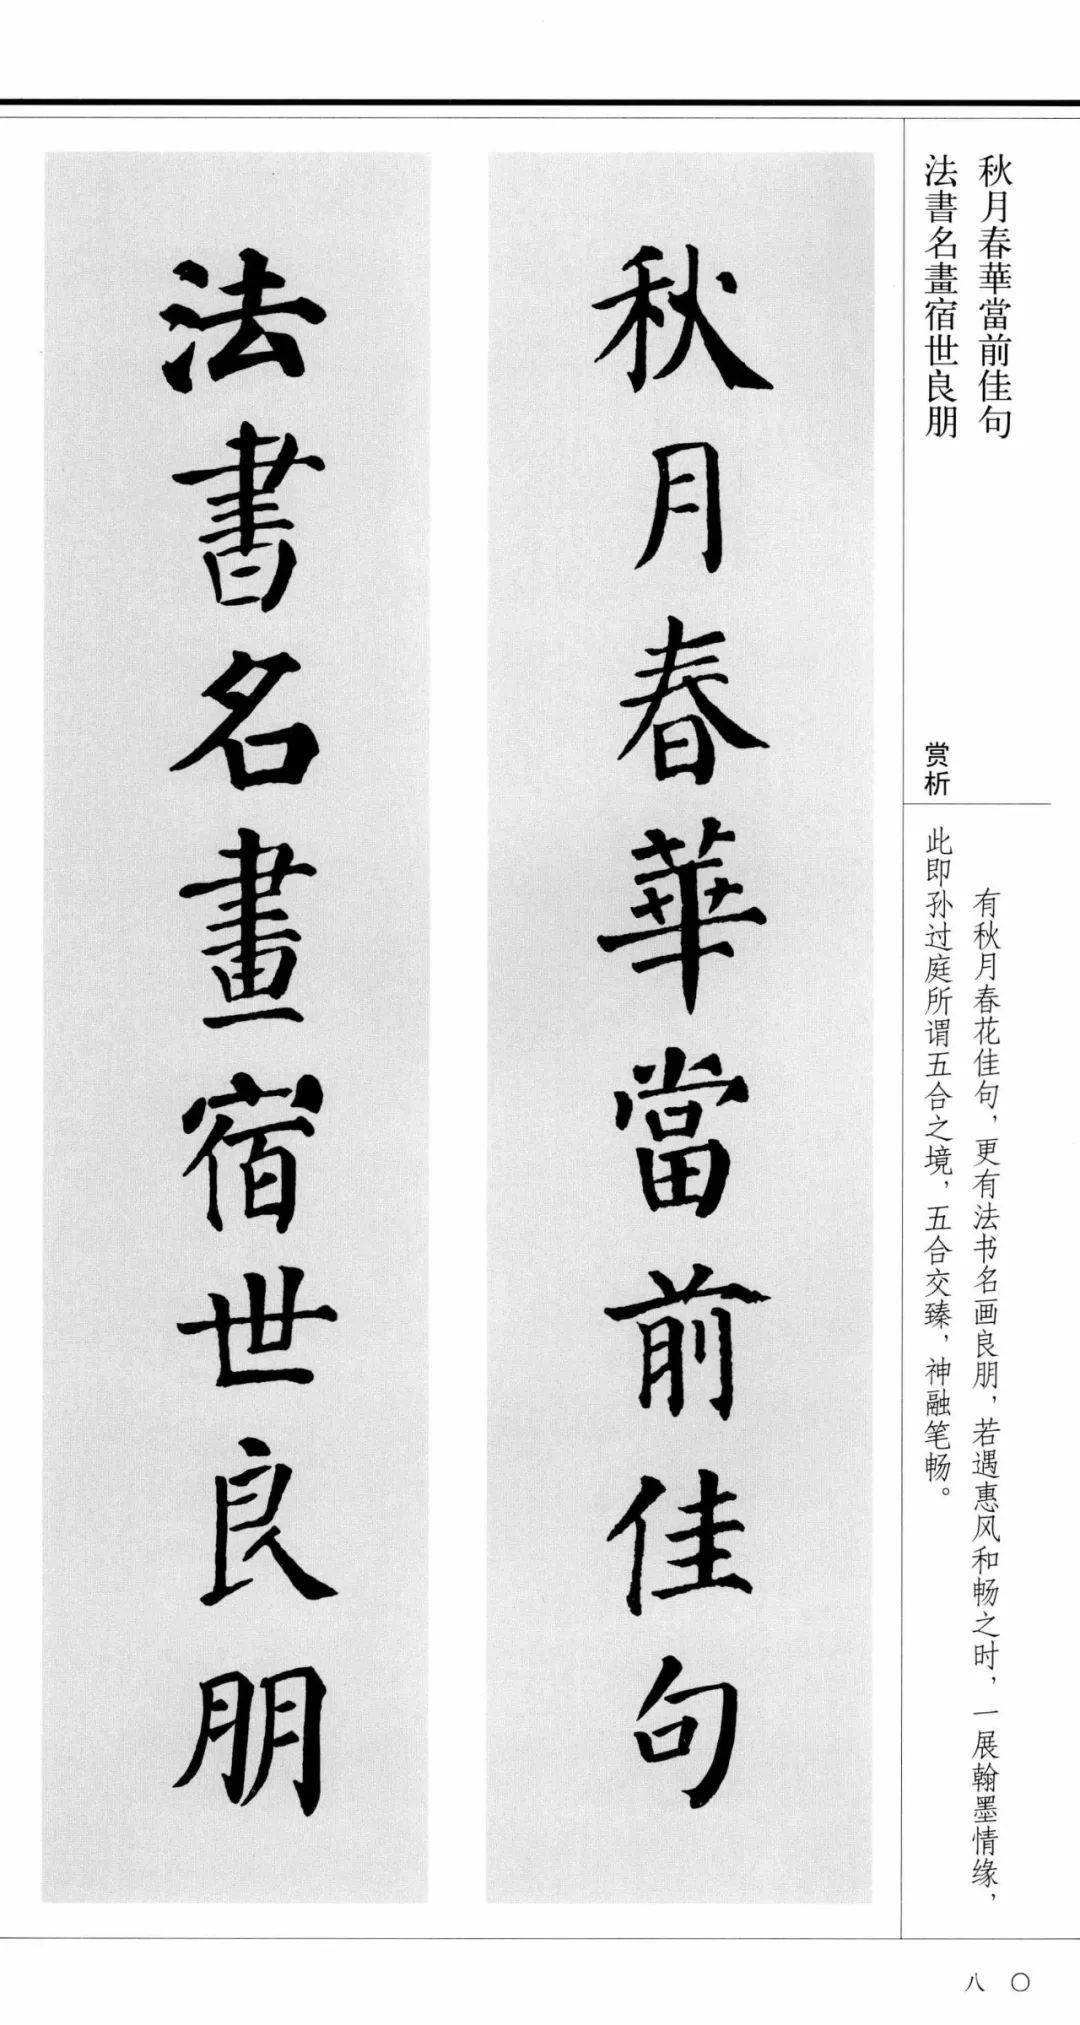 秋月春華當前佳句
法書名畫宿世良朋
赏析
有秋月春花佳句，更有法书名画良朋，若遇惠风和畅之时，一展翰墨情缘，
此即孙过庭所谓五合之境，五合交臻，神融笔畅。
秋月春華當前佳句
法書名畫宿世良朋
八〇